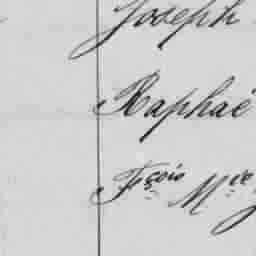 Joseph
Raphaé
Fçois Mce